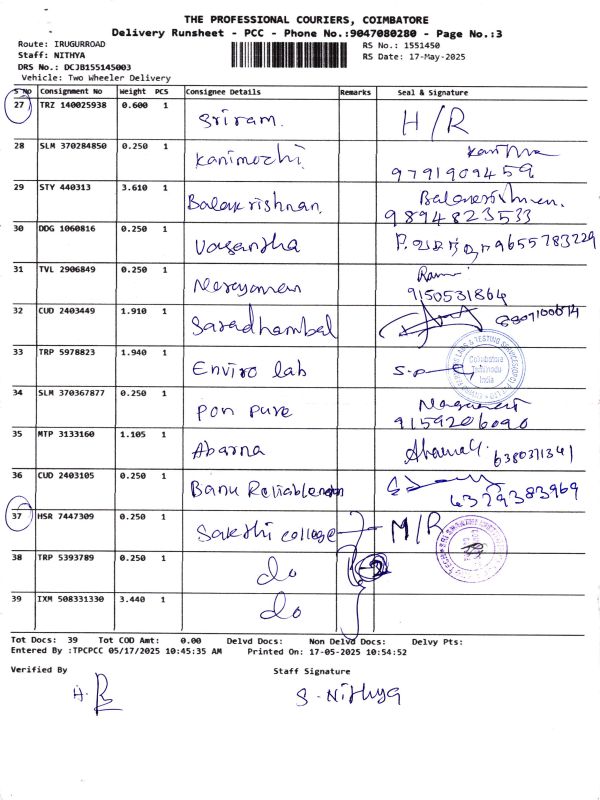 THE PROFESSIONAL COURIERS, COIMBATORE
Delivery Runsheet - PCC - Phone No.:9047080280 - Page No.:3
Route: IRUGURROAD
RS No.: 1551450
Staff: NITHYA
RS Date: 17-May-2025
DRS No.: DCJB155145003
Vehicle: Two Wheeler Delivery
S No Consignment No Weight PCS Consignee Details Remarks Seal & Signature
27 TRZ 140025938 0.600 1 Sriram. H/R
28 SLM 370284850 0.250 1 Kanimozhi
9791909459
29 STY 440313 3.610 1 Balakrishnan.
9894823533
30 DDG 1060816 0.250 1 Vasantha 9655783229
31 TVL 2906849 0.250 1 Narayanan
9150531864
32 CUD 2403449 1.910 1 Saradhambal
33 TRP 5978823 1.940 1 Enviro lab
Coimbatore
Tamilnadu
India
34 SLM 370367877 0.250 1 Pon pure
9159206090
35 MTP 3133160 1.105 1 Abarna 6380371341
36 CUD 2403105 0.250 1 Banu
6379383969
37 HSR 7447309 0.250 1 Sakthi college M/R
38 TRP 5393789 0.250 1 do
39 IXM 508331330 3.440 1 do
Tot Docs: 39 Tot COD Amt: 0.00 Delvd Docs: Non Delvd Docs: Delvy Pts:
Entered By :TPCPCC 05/17/2025 10:45:35 AM Printed On: 17-05-2025 10:54:52
Verified By Staff Signature
S. Nithya